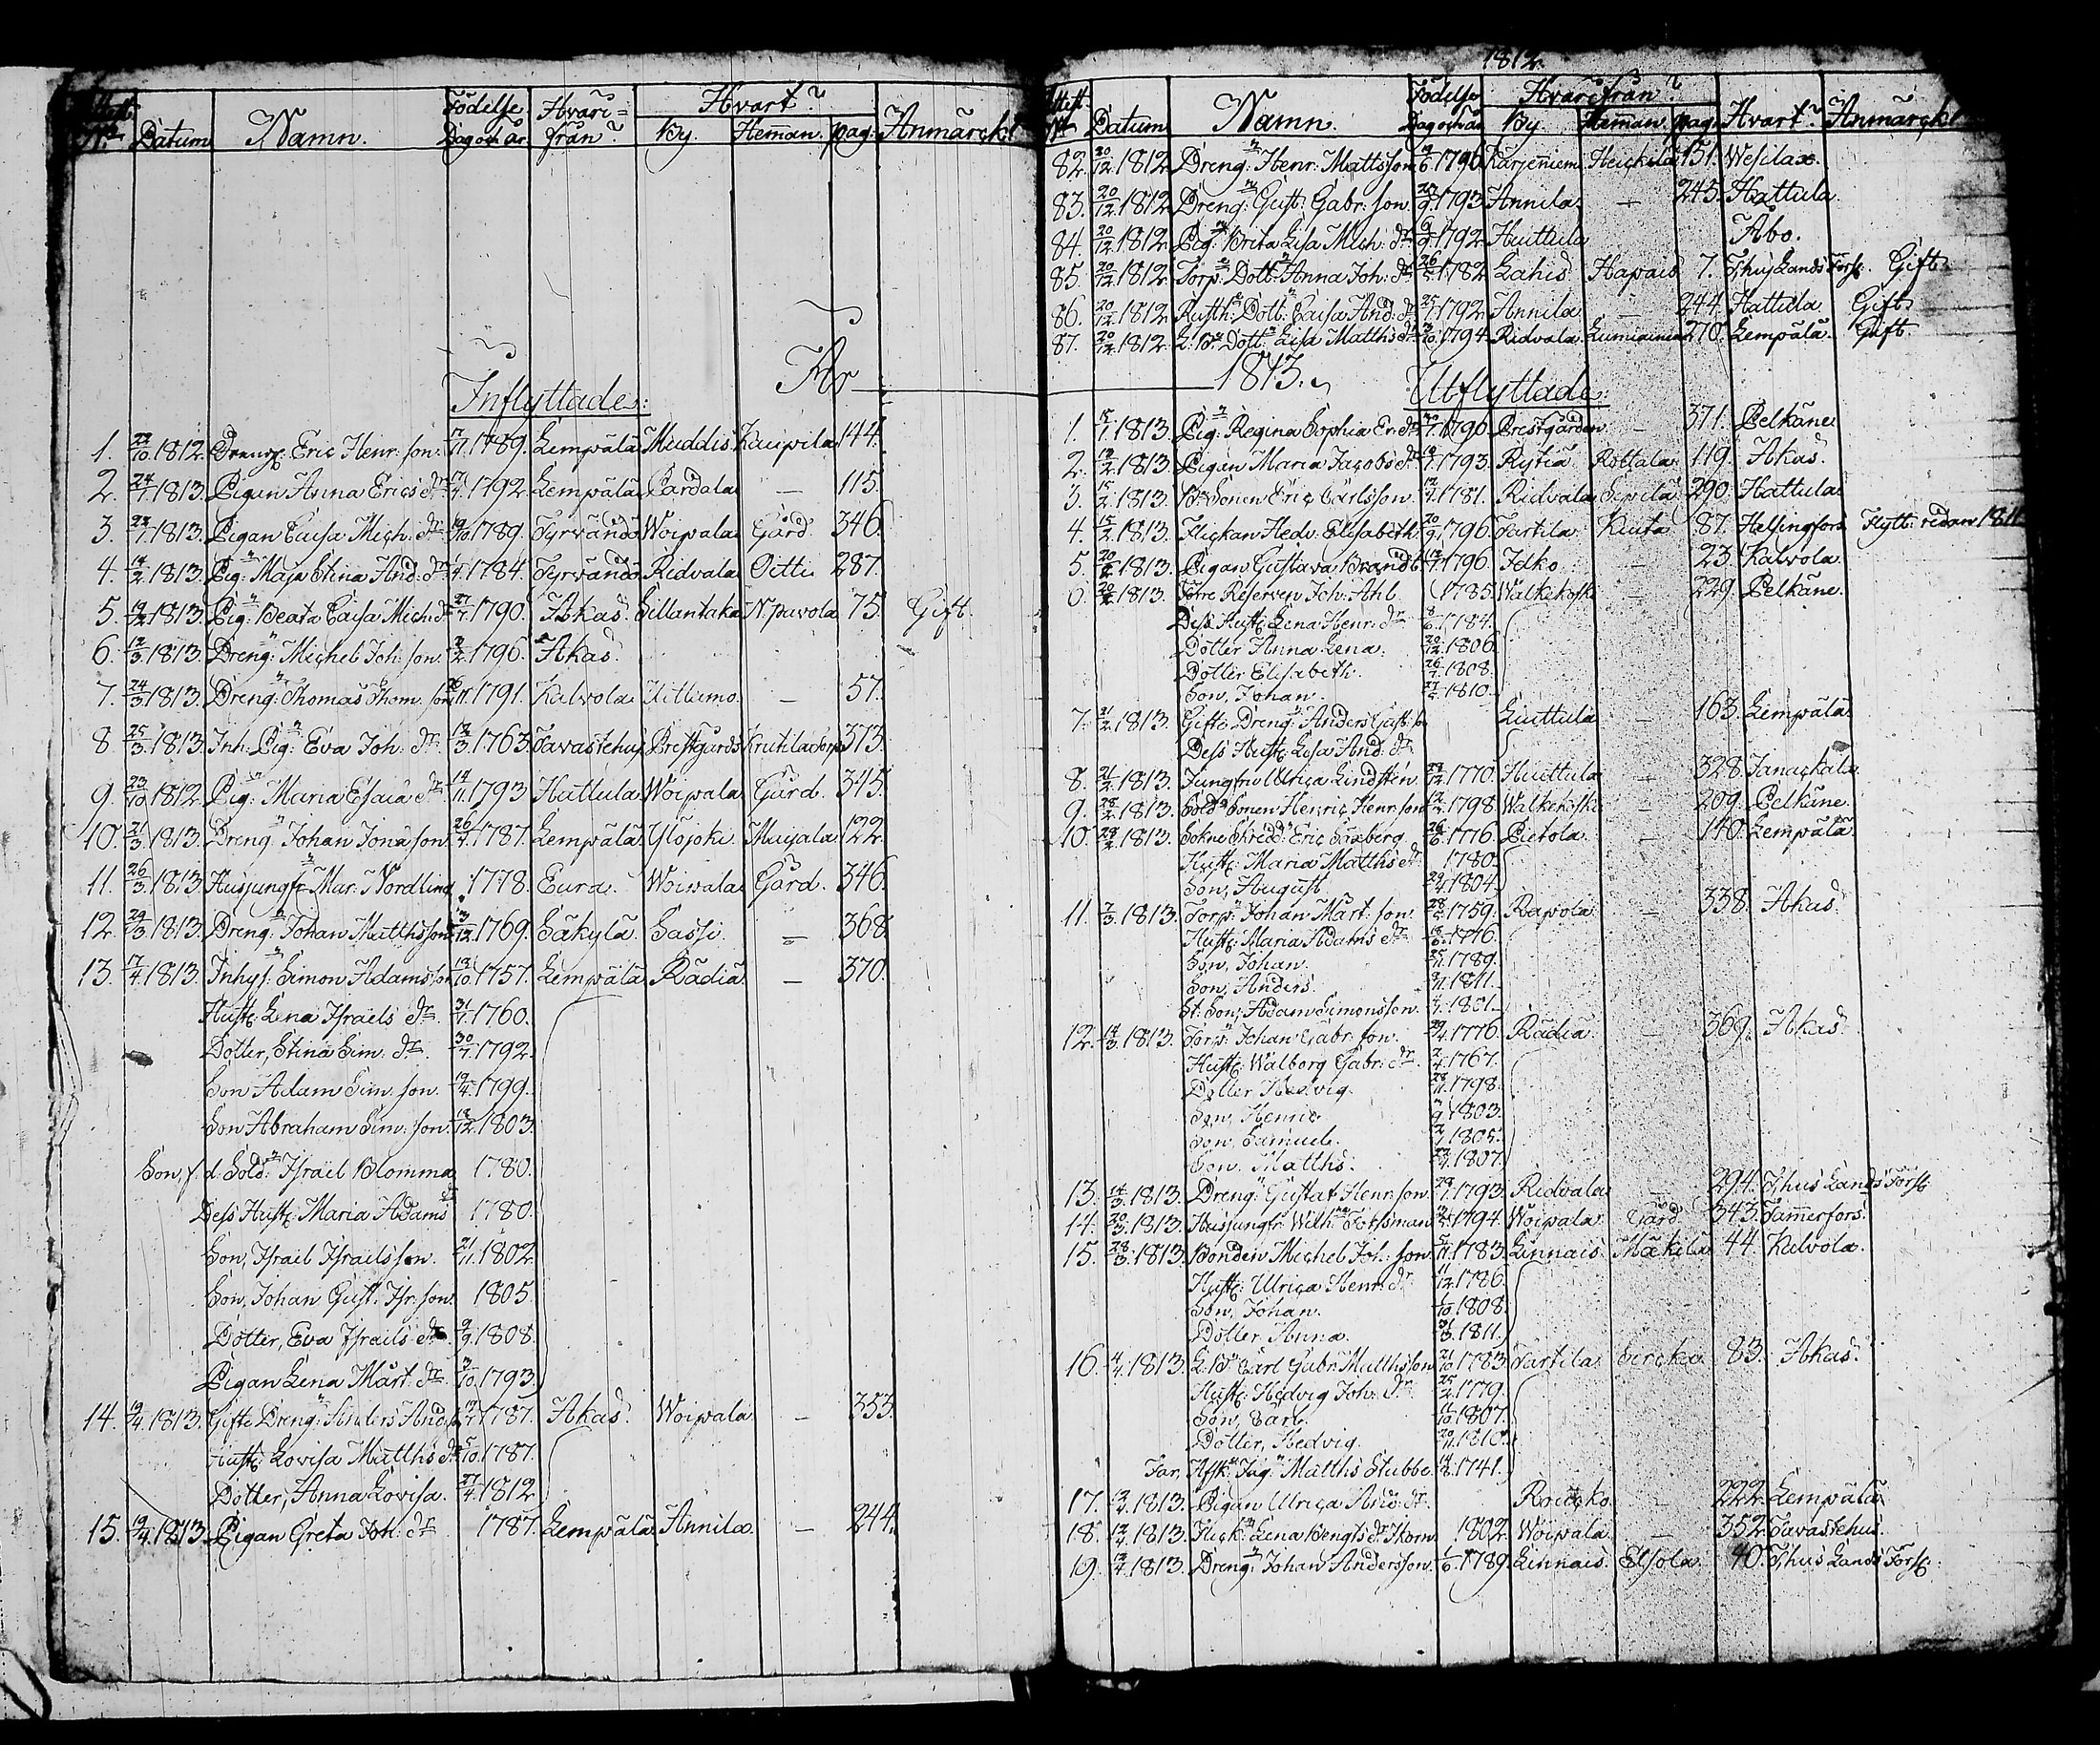 Attest N:o Datum Namn. Födelse Dag och år Hvari=från? Hvart? By. Hemman. pag: Anmärckt
År
Inflyttade:
1. 22/10 1812. Dreng: Eric Henr: son. 1789. Lempälä Muddis Kaupila 144.
2. 24/1 1813. Pigan Anna Erics dr 1792. Lempälä Pardala — 115.
3. 1813. Pigan Caisa Mich: dr 19/10 1789. Tyrvändö Woipala Gård 346.
4. 14/2 1813. Pig: Maja Stina And: dr 1784. Tyrvändö Ridvala Oitti 287.
5. 1813. Pig: Beata Caisa Mich: dr 1790. Akas Sillantaka N.pavola 75. Gift.
6. 12/3 1813. Dreng: Michel Joh: son. 1796. Akas.
7. 24/3 1813. Dreng: Thomas Thom: son 1791. Kalvola Uittamo — 57.
8. 25/3 1813. Inh: Pig: Eva Joh: dr 12/3 1763. Tavastehus Prestgårds Krutila torp 373.
9. 23/10 1812. Pig: Maria Esaiæ dr 14/11 1793 Hattula Woipala Gård. 345.
10. 21/3 1813. Dreng Johan Jonasson. 26/4 1787. Lempälä Ylöjoki. Maijala 122.
11. 26/3 1813 Husjungfr: Mar: Nordling 1778. Eura. Woipala Gård. 346.
12. 29/3 1813. Dreng: Johan Matthsson 3/12 1769. Säkylä. Sassi. — 368.
13. 1813. Inhys: Simon Adamsson 13/10 1757. Lempälä Rädiä — 370.
Hust: Lena Israels dr 31/7 1760.
Dotter, Stina Sim: dr. 30/7 1792.
Son Adam Sim: son. 19/4 1799.
Son Abraham Sim: son. 18/12 1803.
Son, f. d. Sold: Israel Blomma 1780.
Dess Hust: Maria Adams 1780.
Son, Israel Israelsson. 21/11 1802.
Son, Johan Gust. Isr: son. 1805.
Dotter, Eva Israels dr. 9/9 1808.
Pigan Lena Mårt: dr 3/10 1793.
14. 1813. Gifte Dreng: Anders And: s 1787. Akas. Woipala — 353.
Hust: Lovisa Matths dr 5/10 1787.
Dotter, Anna Lovisa. 27/4 1812.
15. 19/4 1813. Pigan Greta Joh: dr 1787. Lempälä Annila. — 244.
1812.
Attest N:o Datum Namn. Födelse Dag och år Hvarifrån? By. Hemman. pag: Hvart? Anmärckt
82. 20/12 1812 Dreng: Henr: Mattsson 1796. Karjeniem Heickilä 151. Wesilax.
83. 20/12 1812 Dreng: Gust: Gabr: son. 1793. Annila — 245. Hattula.
84. 20/12 1812 Pig: Brita Lisa Mich: dr 1792. Huittula Åbo.
85. 20/12 1812 Torp: Dott: Anna Joh: dr 1782. Lahis Hapais 7. T:hus Lands Förs: Gift.
86. 20/12 1812 Rusth: Dott: Caisa And: dr 1792. Annila — 244. Hattula Gift.
87. 20/12 1812. L: B: Dott: Lisa Matths dr 1794. Ridvala Lumiainen 270. Lempälä. Gift.
1813.
Utflyttade:
1. 15/1 1813. Pig: Regina Sophia Er: dr 1796. Prestgården — 371. Pelkäne
2. 1813. Pigan Maria Jacobs dr 1793. Rytiä Rottala 119. Akas.
3. 15/2 1813. B: Sonen Eric Carlsson. 1781. Ridvala Sepilä 290. Hattula
4. 15/2 1813. Flickan Hedv. Elisabeth 1796. Tartila Kiuta 87. Helsingfors Flytt: redan 1811
5. 1813. Pigan Gustava Brandt 1796. Idko — 23. Kalvola.
6. 1813. Förre Reserven Joh: Ahl. 1785. Walkekosk — 229. Pelkäne.
Dess Hust: Lena Henr: dr 1784.
Dotter Anna Lena. 20/12 1806.
Dotter Elisabeth. 1808.
Son, Johan. 1810.
7. 21/2 1813. Gifte Dreng: Anders Gust: s. Liuttula — 163. Lempälä.
Dess Hust: Lisa And: dr
8. 21/2 1813. Jungfru Ulrica Lindstén. 1770. Huittula — 328. Janackala.
9. 28/2 1813. Sold: Sonen Henric Henr: son 1798. Walkekosk — 209. Pelkäne.
10. 1813. Sokne Skredd: Eric Saxberg. 1776. Pietola. — 140. Lempälä.
Hust: Maria Matths dr 1780.
Son, August 1804.
11. 7/3 1813. Torp: Johan Mårt: son. 1759. Rapola — 338. Akas.
Hust: Maria Adams dr 1776.
Son, Johan. 1789.
Son, Anders. 1811.
St: Son, Adam Simonsson. 1801.
12. 14/3 1813. Torp: Johan Gabr: son. 1776. Rädiä — 369. Akas.
Hust: Walborg Gabr: dr. 1767.
Dotter Hedvig. 28/11 1798.
Son, Henric 1803.
Son, Samuel. 1805.
Son, Matths. 1807.
13. 14/3 1813. Dreng: Gustaf Henr: son. 1793. Ridvala — 294. T:hus Lands Förs:
14. 20/3 1813. Husjungfr: Wilh: Forssman 1794. Woipala Gård 343. Tammerfors.
15. 28/3 1813. Bonden Michel Joh: son. 1783. Linnais Mäkilä 44. Kalvola.
Hust: Ulrica Henr: dr 11/12 1786.
Son, Johan. 1808.
Dotter Anna. 31/3 1811.
16. 4/4 1813. L: B: Carl Gabr: Matthsson 21/10 1783. Tartila Sercko 83. Akas.
Hust: Hedvig Joh: dr 25/2 1779.
Son, Carl. 11/10 1807.
Dotter, Hedvig. 20/11 1810.
Far, Afsk: Jäg: Matths Stubbe. 1741.
17. 1813. Pigan Ulrica And: dr. Roicko. — 222. Lempälä.
18. 1813. Flick: Lena Bengts dr Thom. 1802. Woipala — 352. Tavastehus.
19. 1813. Dreng: Johan Andersson. 1789. Linnais Elsola. 40. T:hus Lands Förs: